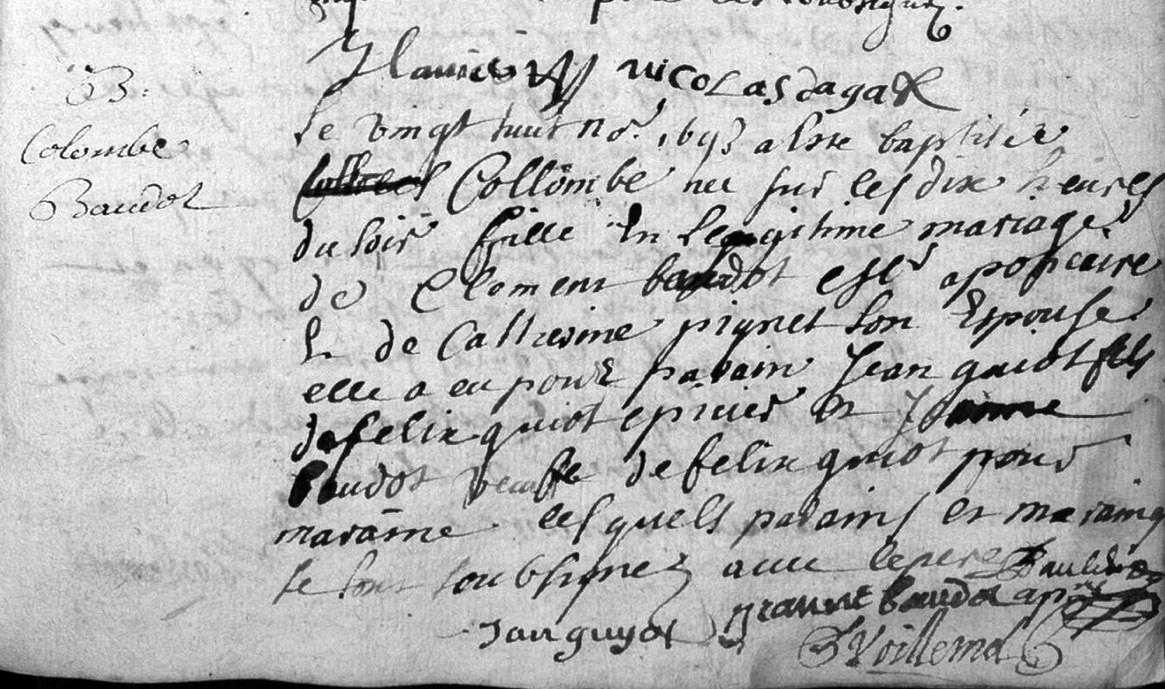 B.
Colombe
Baudot
Nicolas dagat
Le vingt huit no.r 1693 a este baptisée
Collombe neé sur les dix heures
du soir fille En Legitime mariage
de Clement baudot esl.r apoticaire
Et de Catherine pignet son Espouse
elle a eu pour parain Jean guiot fils
de felix guiot epicier et Jeanne
baudot veufve de felix guiot pour
maraine lesquels parains et maraing
se sont soubsignez avec le pere
Jan guyot Jeanne baudot
Voillemot